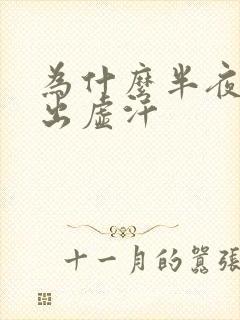 為什麼半夜
出虛汗
十一月的囂張